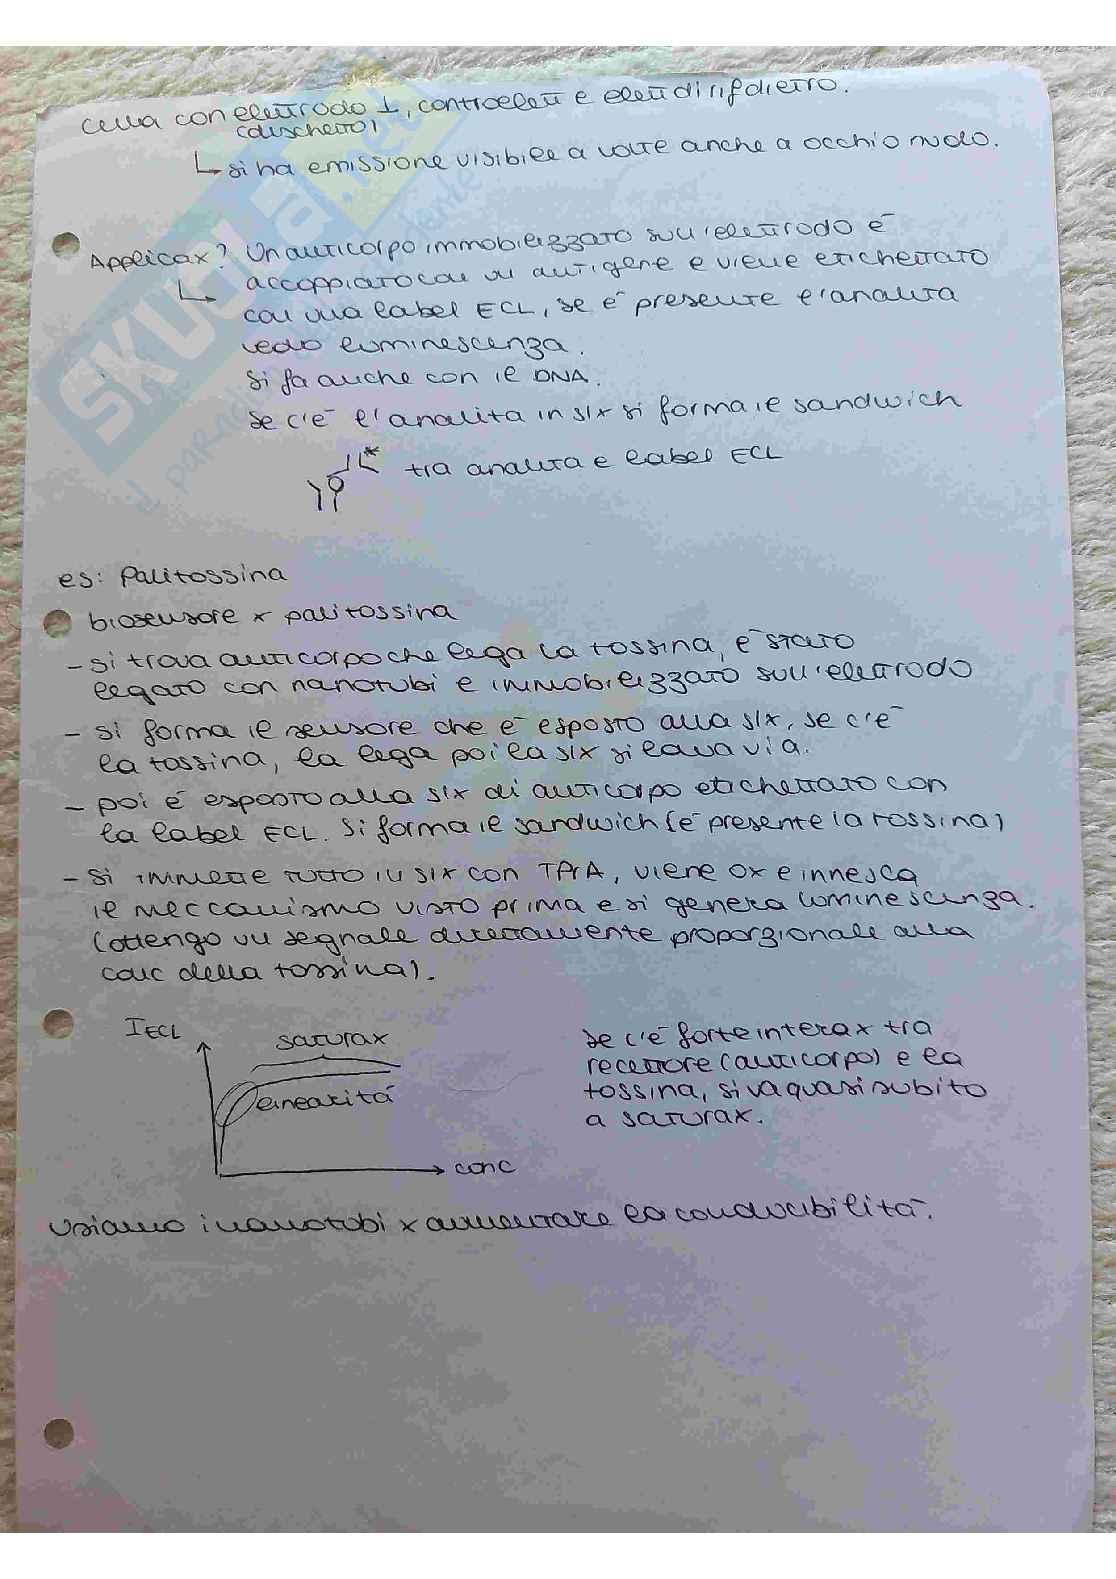 cella con elettrodo ⊥, controelett e elett di rif dietro.
(dischetto)
↳ si ha emissione visibile a volte anche a occhio nudo.
Applicax? Un anticorpo immobilizzato sull'elettrodo è
↳ accoppiato con un antigene e viene etichettato
con una label ECL, se è presente l'analita
vedo luminescenza.
Si fa anche con il DNA.
Se c'è l'analita in slx si forma il sandwich
* tra analita e label ECL
es: Palitossina
biosensore x palitossina
- si trova anticorpo che lega la tossina, è stato
legato con nanotubi e immobilizzato sull'elettrodo
- si forma il sensore che è esposto alla slx, se c'è
la tossina, la lega poi la slx si lava via.
- poi è esposto alla slx di anticorpo etichettato con
la label ECL. Si forma il sandwich (è presente la tossina)
- Si immette tutto in slx con TPrA, viene ox e innesca
il meccanismo visto prima e si genera luminescenza.
(ottengo un segnale direttamente proporzionale alla
conc della tossina).
I ECL
saturax
linearità
conc
Se c'è forte interax tra
recettore (anticorpo) e la
tossina, si va quasi subito
a saturax.
Usiamo i nanotubi x aumentare la conducibilità.
SKUOLA.net